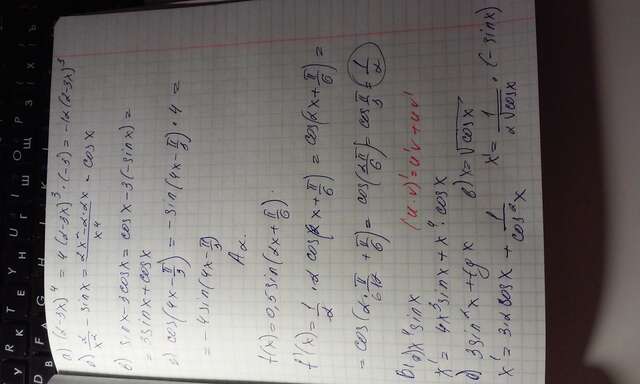 а) (2-3x)^4 = 4(2-3x)^3 · (-3) = -12(2-3x)^3
б) 2/x^2 - sinx = (2x^2-2·2x)/x^4 - cosx
в) sinx-3cosx = cosx-3(-sinx) =
= 3sinx+cosx
г) cos(4x-π/3) = -sin(4x-π/3)·4 =
= -4sin(4x-π/3)
A2.
f(x) = 0,5sin(2x+π/6)
f'(x) = 1/2 · 2 cos(2x+π/6) = cos(2x+π/6) =
= cos(2·π/12+π/6) = cos(2π/6) = cosπ/3 = 1/2
B1 а) x^4 sinx (u·v)'=u'v+uv'
x' = 4x^3 sinx + x^4 · cosx
б) 3sin^2x+tgx в) x=√cosx
x' = 3·2cosx + 1/cos^2x x' = 1/(2√cosx) · (-sinx)